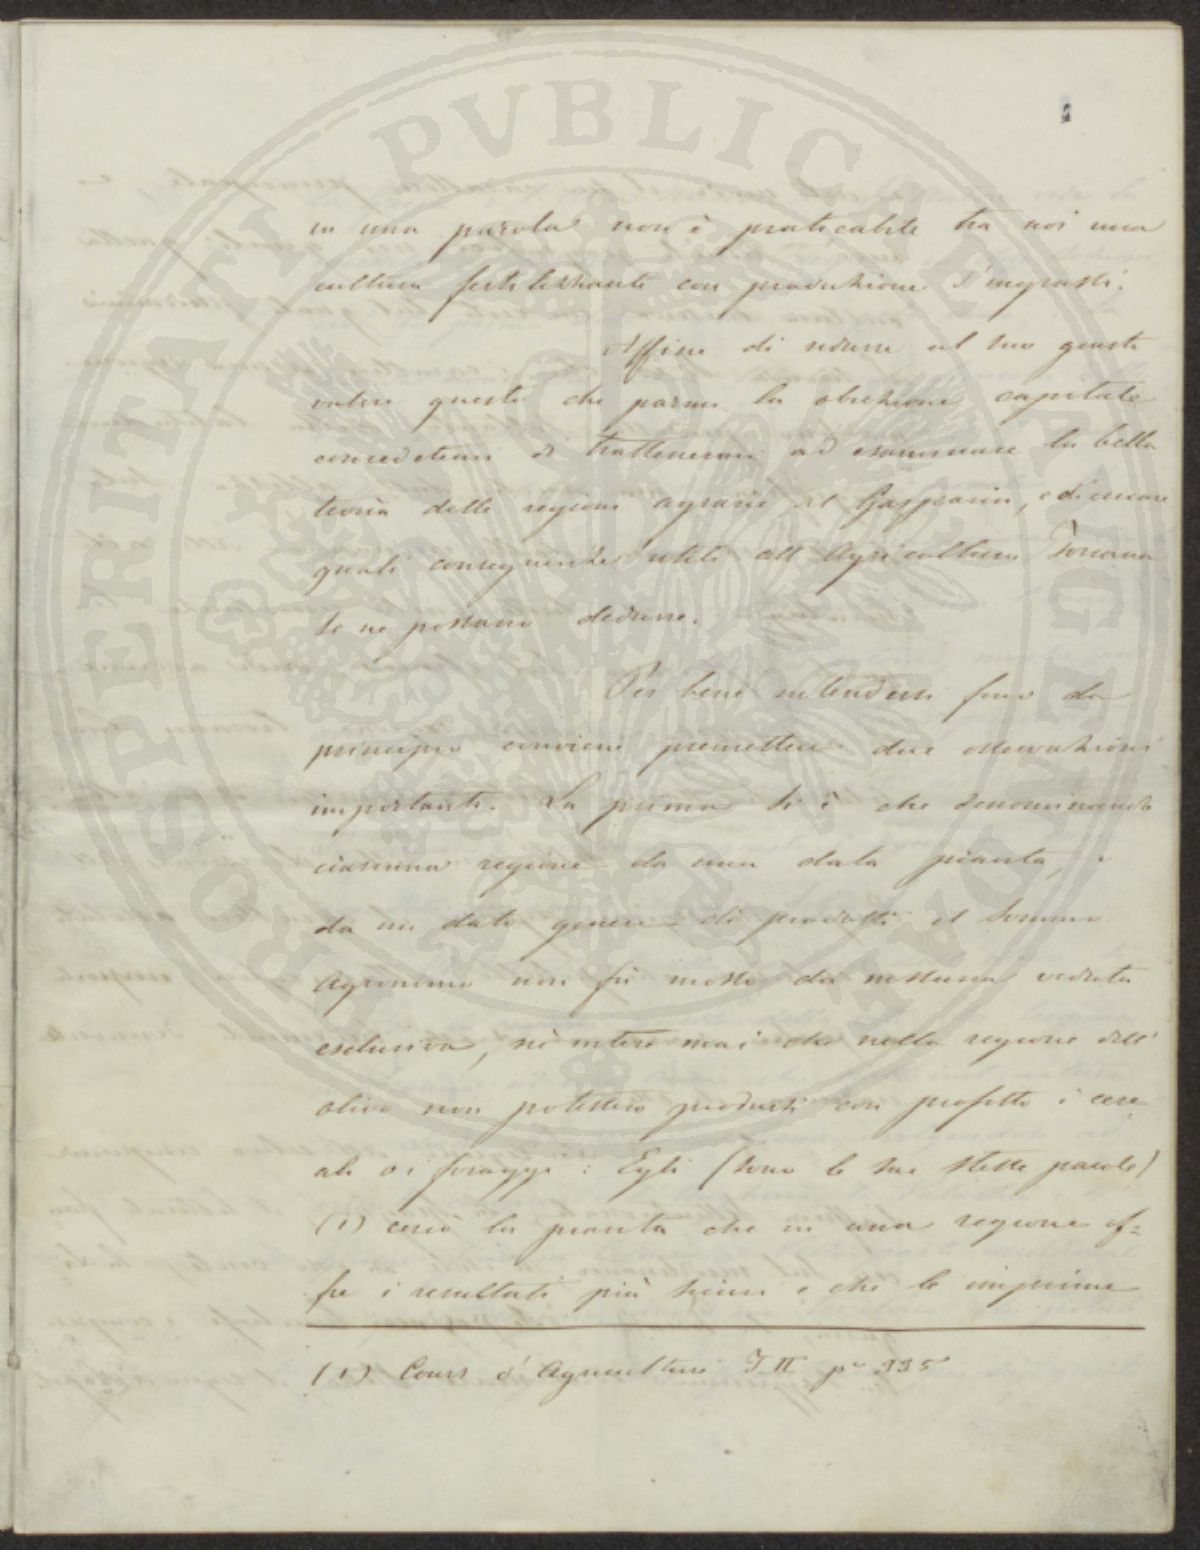 PROSPERITATI PVBLICAE AVGENDAE
in una parola non è praticabile tra noi una
cultura fertilizzante con produzione d'ingrassi.
Affine di ridurre al suo giusto
valore questa che parmi la obiezione capitale
concedetemi di trattenermi ad esaminare la bella
teoria delle regioni agrarie del Gasparin, e di cercare
quali conseguenze utili all'Agricoltura Toscana
se ne possano dedurre.
Per bene intendersi fino da
principio conviene premettere due osservazioni
importanti. La prima si è che denominando
ciascuna regione da una data pianta, o
da un dato genere di prodotti il sommo
Agronomo non fù mosso da nessuna veduta
esclusiva, nè intese mai che nella regione dell'
olivo non potessero prodursi con profitto i cere
ali o i foraggi: Egli (sono le sue stesse parole)
(1) cercò la pianta che in una regione of=
fre i resultati più sicuri e che le imprime
(1) Cours d'Agriculture T II p. 335